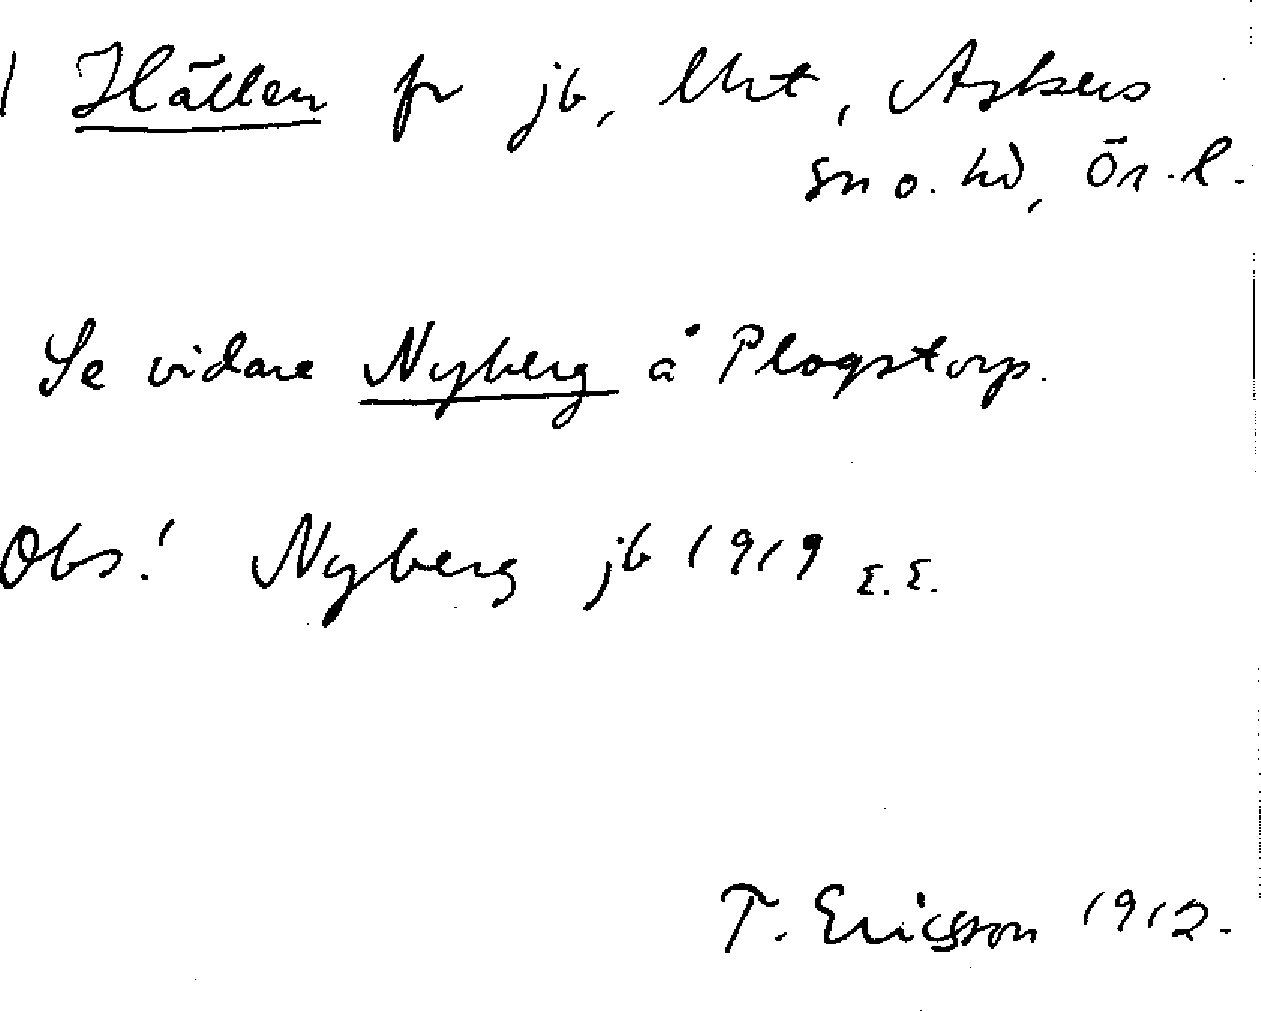 Hällen fr jb, Urt, Askers
sn o. hd, Ör. l.
Se vidare Nyberg å Plogstorp.
Obs! Nyberg jb 1919 E. E.
T. Ericsson 1912.